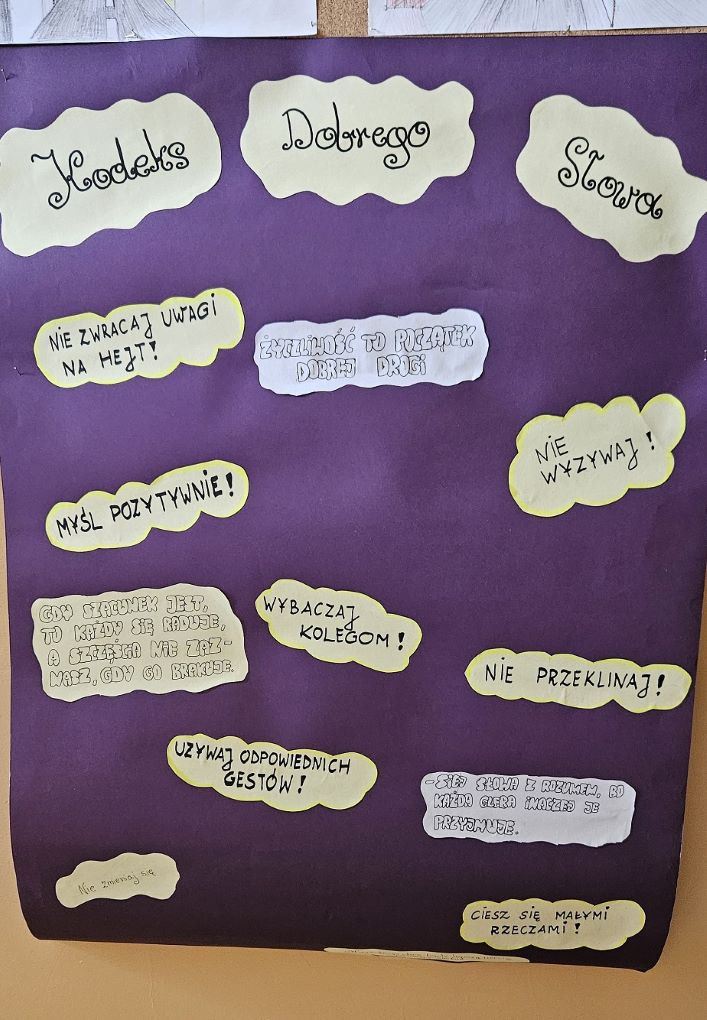 Kodeks Dobrego Słowa
NIE ZWRACAJ UWAGI
NA HEJT!
ŻYCZLIWOŚĆ TO POCZĄTEK
DOBREJ DROGI
NIE
WYZYWAJ!
MYŚL POZYTYWNIE!
GDY SZACUNEK JEST,
TO KAŻDY SIĘ RADUJE,
A SZCZĘŚCIA NIE ZAZ-
NASZ, GDY GO BRAKUJE.
WYBACZAJ
KOLEGOM!
NIE PRZEKLINAJ!
UŻYWAJ ODPOWIEDNICH
GESTÓW!
-SIEJ SŁOWA Z ROZUMEM, BO
KAŻDA GLEBA INACZEJ JE
PRZYJMUJE.
Nie zmieniaj się
CIESZ SIĘ MAŁYMI
RZECZAMI!